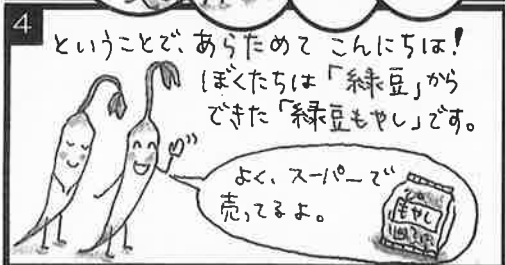 4
ということで、あらためて こんにちは！
ぼくたちは「緑豆」から
できた「緑豆もやし」です。
よく、スーパーで
売ってるよ。
もやし